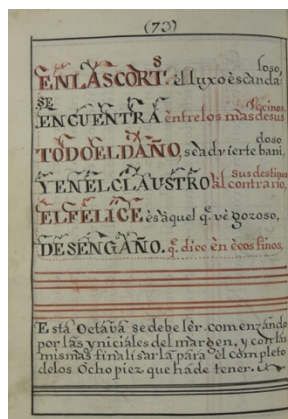 (73)
loso,
EN LAS CORTS. el luxo es canda-
SE vecinos,
ENCUENTRA entre los mas de sus
doso
TODO EL DAÑO, se ad vierte bani
sus destinos
Y EN EL CLAUSTRO al contrario,
EL FELICE es aquel q.e vé gozoso,
DESENGAÑO. q.e dice en ecos finos,
Está Octava se debe lér comenzándo
por las yniciáles del margen, y con las
mismas finalisarla para el completo
de los Ocho piez que há de tener.